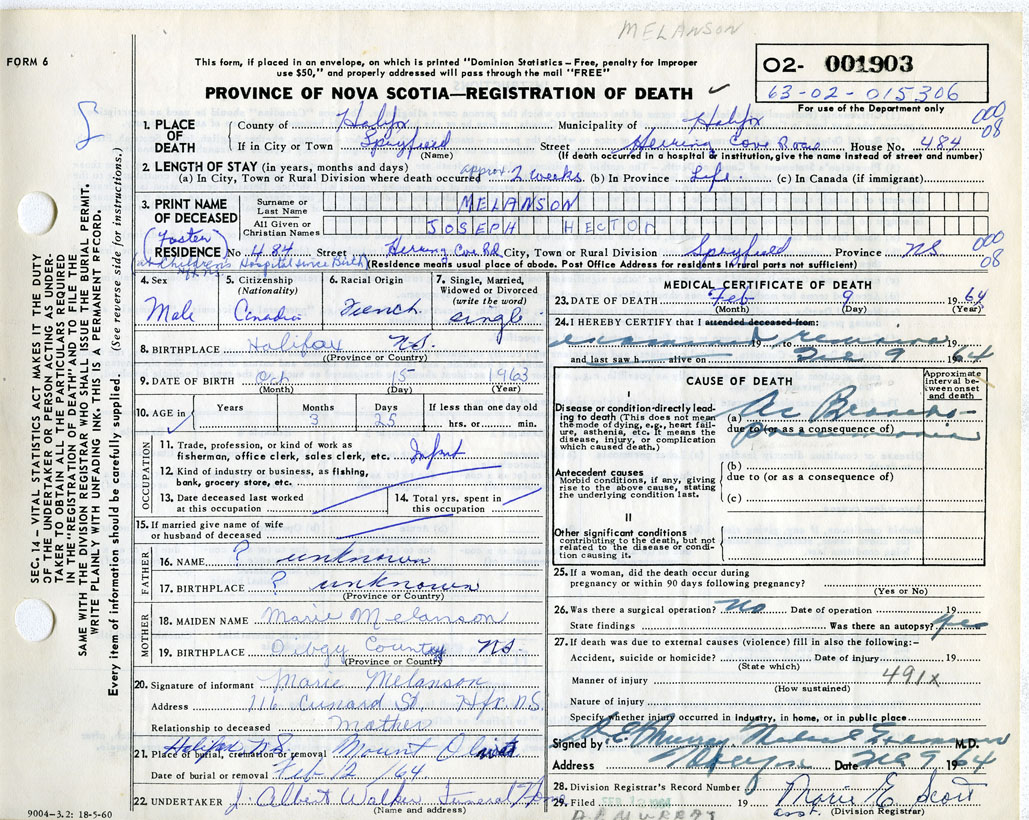 MELANSON
FORM 6
This form, if placed in an envelope, on which is printed "Dominion Statistics – Free, penalty for Improper
use $50," and properly addressed will pass through the mail "FREE"
PROVINCE OF NOVA SCOTIA—REGISTRATION OF DEATH ✓
02- 001903
63-02-015306
For use of the Department only
000
08
1. PLACE OF DEATH
County of Halifx Municipality of Halifx
If in City or Town Spryfield Street Herring Cove Road House No. 484
(Name) (If death occurred in a hospital or institution, give the name instead of street and number)
2. LENGTH OF STAY (in years, months and days)
(a) In City, Town or Rural Division where death occurred approx. 2 weeks (b) In Province Life (c) In Canada (if immigrant)
3. PRINT NAME OF DECEASED
Surname or Last Name MELANSON
All Given or Christian Names JOSEPH HECTON
(Foster)
RESIDENCE No. 484 Street Herring Cove Rd. City, Town or Rural Division Spryfield Province NS
000
08
Hospital since Birth) (Residence means usual place of abode. Post Office Address for residents in rural parts not sufficient)
4. Sex Male
5. Citizenship (Nationality) Canadian
6. Racial Origin French
7. Single, Married, Widowed or Divorced (write the word) single
8. BIRTHPLACE Halifax N.S.
(Province or Country)
9. DATE OF BIRTH Oct 15 1963
(Month) (Day) (Year)
10. AGE in Years Months 3 Days 25 If less than one day old hrs. or min.
OCCUPATION
11. Trade, profession, or kind of work as fisherman, office clerk, sales clerk, etc. Infant
12. Kind of industry or business, as fishing, bank, grocery store, etc.
13. Date deceased last worked at this occupation
14. Total yrs. spent in this occupation
15. If married give name of wife or husband of deceased
FATHER
16. NAME ? unknown
17. BIRTHPLACE ? unknown
(Province or Country)
MOTHER
18. MAIDEN NAME Marie Melanson
19. BIRTHPLACE Dibgy County NS.
(Province or Country)
20. Signature of informant Marie Melanson
Address 116 Cunard St. Hfx. N.S.
Relationship to deceased Mother
Halifax N.S.
21. Place of burial, cremation or removal Mount Olivet
Date of burial or removal Feb 12 /64
22. UNDERTAKER J. Albert Walker Funeral Home
(Name and address)
9004-3.2: 18-5-60
MEDICAL CERTIFICATE OF DEATH
23. DATE OF DEATH Feb 9 1964
(Month) (Day) (Year)
24. I HEREBY CERTIFY that I attended deceased from:
examined 19 to remains
and last saw h alive on Feb 9 1964
CAUSE OF DEATH
Approximate interval between onset and death
I
Disease or condition directly leading to death (This does not mean the mode of dying, e.g., heart failure, asthenia, etc. It means the disease, injury, or complication which caused death.)
(a) Ac Broncho-
due to (or as a consequence of) pneumonia
Antecedent causes
Morbid conditions, if any, giving rise to the above cause, stating the underlying condition last.
(b)
due to (or as a consequence of)
(c)
II
Other significant conditions
contributing to the death, but not related to the disease or condition causing it.
25. If a woman, did the death occur during pregnancy or within 90 days following pregnancy?
(Yes or No)
26. Was there a surgical operation? no Date of operation 19
State findings Was there an autopsy? yes
27. If death was due to external causes (violence) fill in also the following:-
Accident, suicide or homicide? Date of injury 19
(State which)
Manner of injury 491x
(How sustained)
Nature of injury
Specify whether injury occurred in industry, in home, or in public place
Signed by Murray Medical Examiner M.D.
Address Date Feb 9 1964
28. Division Registrar's Record Number
29. Filed 19 Marie E. Scott
Asst. (Division Registrar)
D.E. MURRAY
SEC. 14 – VITAL STATISTICS ACT MAKES IT THE DUTY
OF THE UNDERTAKER OR PERSON ACTING AS UNDER-
TAKER TO OBTAIN ALL THE PARTICULARS REQUIRED
IN THE "REGISTRATION OF DEATH" AND TO FILE THE
SAME WITH THE DIVISION REGISTRAR WHO SHALL ISSUE THE BURIAL PERMIT.
WRITE PLAINLY WITH UNFADING INK. THIS IS A PERMANENT RECORD.
Every item of information should be carefully supplied. (See reverse side for instructions.)